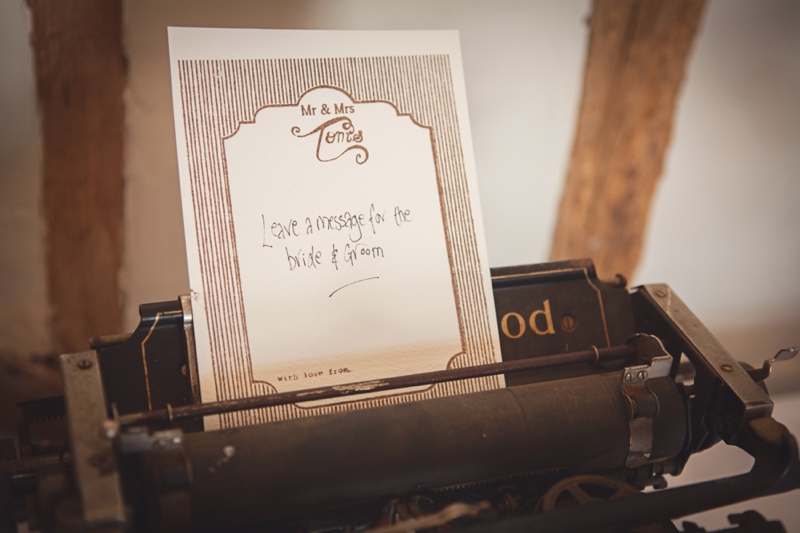 Mr & Mrs
Tonis
Leave a message for the
bride & Groom
With love from
od